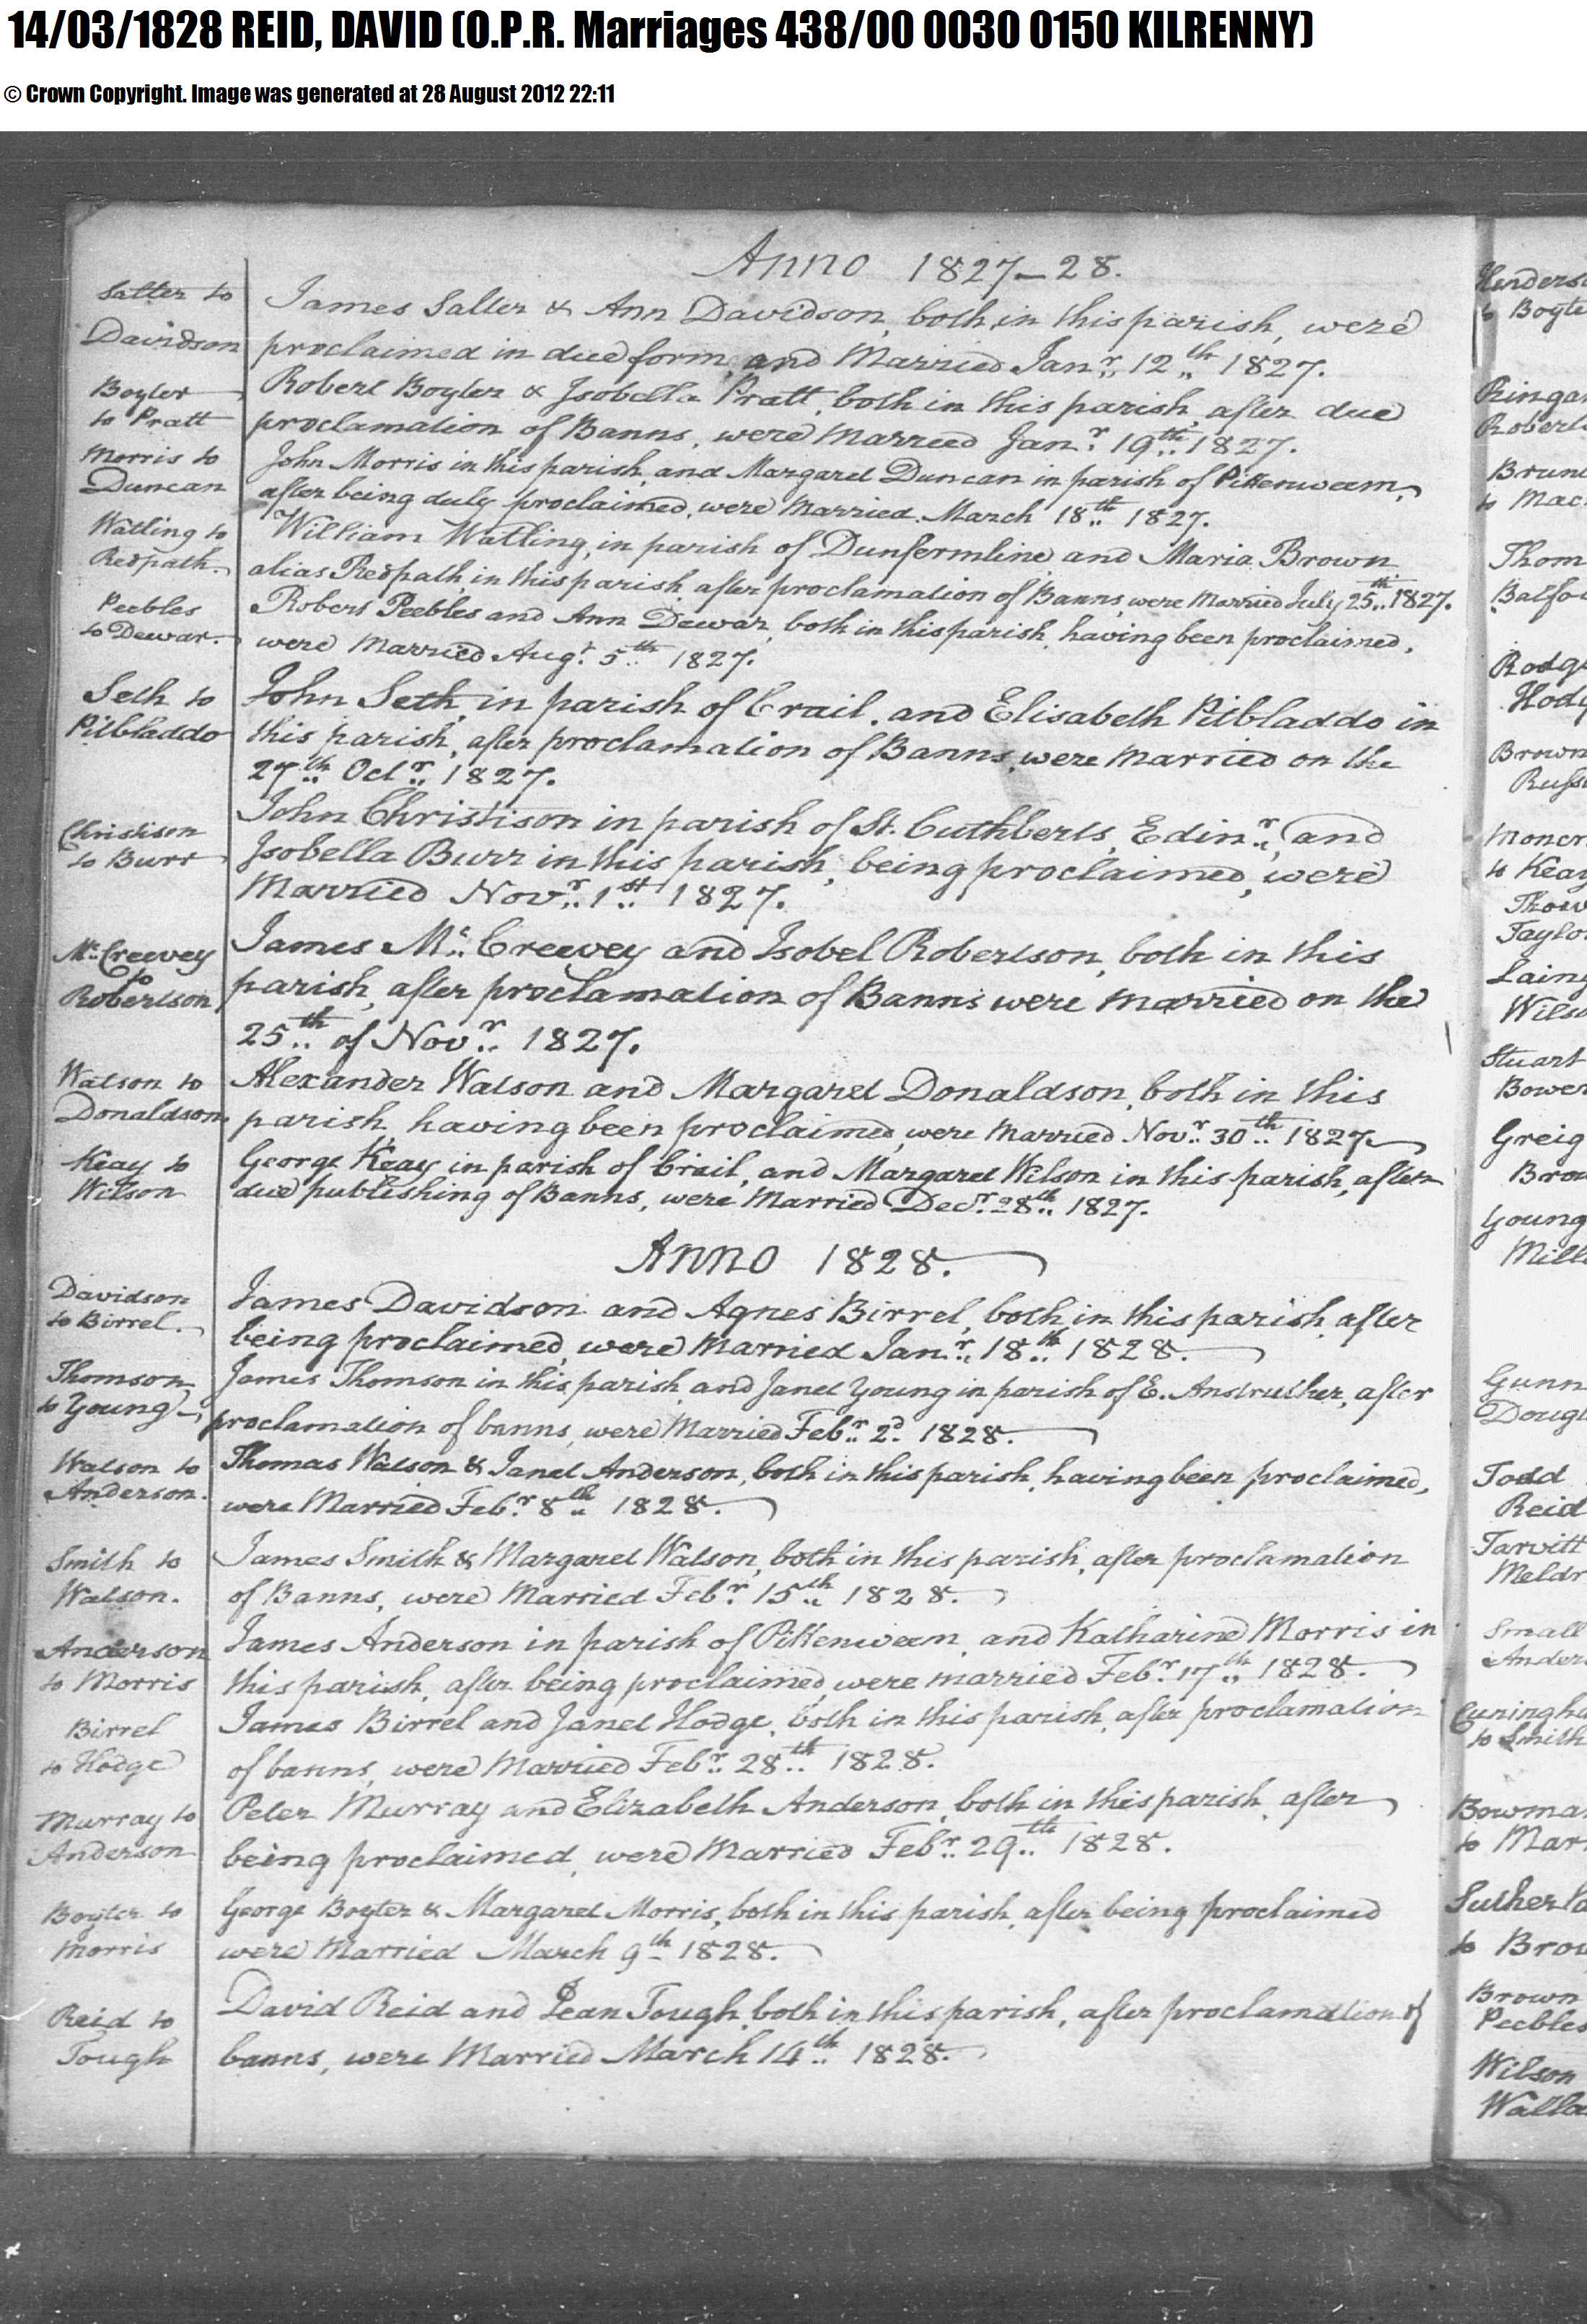 14/03/1828 REID, DAVID (O.P.R. Marriages 438/00 0030 0150 KILRENNY)
© Crown Copyright. Image was generated at 28 August 2012 22:11
Anno 1827–28.
Salter to
Davidson
James Salter & Ann Davidson, both in this parish, were
proclaimed in due form, and Married Janr. 12th 1827.
Boyter
to Pratt
Robert Boyter & Isobella Pratt, both in this parish, after due
proclamation of Banns, were Married Janr. 19th 1827.
Morris to
Duncan
John Morris in this parish, and Margaret Duncan in parish of Pittenweem,
after being duly proclaimed, were Married March 18th 1827.
Watling to
Redpath.
William Watling, in parish of Dunfermline, and Maria Brown
alias Redpath, in this parish, after proclamation of Banns, were Married July 25th 1827.
Peebles
to Dewar.
Robert Peebles and Ann Dewar, both in this parish, having been proclaimed,
were Married Augt. 5th 1827.
Seth to
Pitbladdo
John Seth, in parish of Crail, and Elisabeth Pitbladdo in
this parish, after proclamation of Banns, were Married on the
27th Octr. 1827.
Christison
to Burr
John Christison in parish of St. Cuthberts, Edinr., and
Isobella Burr in this parish, being proclaimed, were
Married Novr. 1st 1827.
Mc.Creevey
to
Robertson
James Mc. Creevey and Isobel Robertson, both in this
parish, after proclamation of Banns were Married on the
25th of Novr. 1827.
Watson to
Donaldson.
Alexander Watson and Margaret Donaldson, both in this
parish, having been proclaimed, were Married Novr. 30th 1827.
Keay to
Wilson
George Keay in parish of Crail, and Margaret Wilson in this parish, after
due publishing of Banns, were Married Decr. 28th 1827.
Anno 1828.
Davidson
to Birrel.
James Davidson and Agnes Birrel, both in this parish, after
being proclaimed, were Married Janr. 18th 1828.
Thomson
to Young
James Thomson in this parish, and Janet Young in parish of E. Anstruther, after
proclamation of banns, were Married Febr. 2d. 1828.
Watson to
Anderson.
Thomas Watson & Janet Anderson, both in this parish, having been proclaimed,
were Married Febr. 8th 1828.
Smith to
Watson.
James Smith & Margaret Watson, both in this parish, after proclamation
of Banns, were Married Febr. 15th 1828.
Anderson
to Morris
James Anderson in parish of Pittenweem, and Katharine Morris in
this parish, after being proclaimed, were married Febr. 17th 1828.
Birrel
to Hodge
James Birrel and Janet Hodge, both in this parish, after proclamation
of banns, were Married Febr. 28th 1828.
Murray to
Anderson
Peter Murray and Elizabeth Anderson, both in this parish, after
being proclaimed, were Married Febr. 29th 1828.
Boyter to
Morris
George Boyter & Margaret Morris, both in this parish, after being proclaimed
were Married March 9th 1828.
Reid to
Tough
David Reid and Jean Tough, both in this parish, after proclamation of
banns, were Married March 14th 1828.
to Boyte
Brown
to Keay
Stuart
Greig
Young
Gunn
Todd
Reid
Tarvitt
Small
to Smith
Brown
Peebles
Wilson